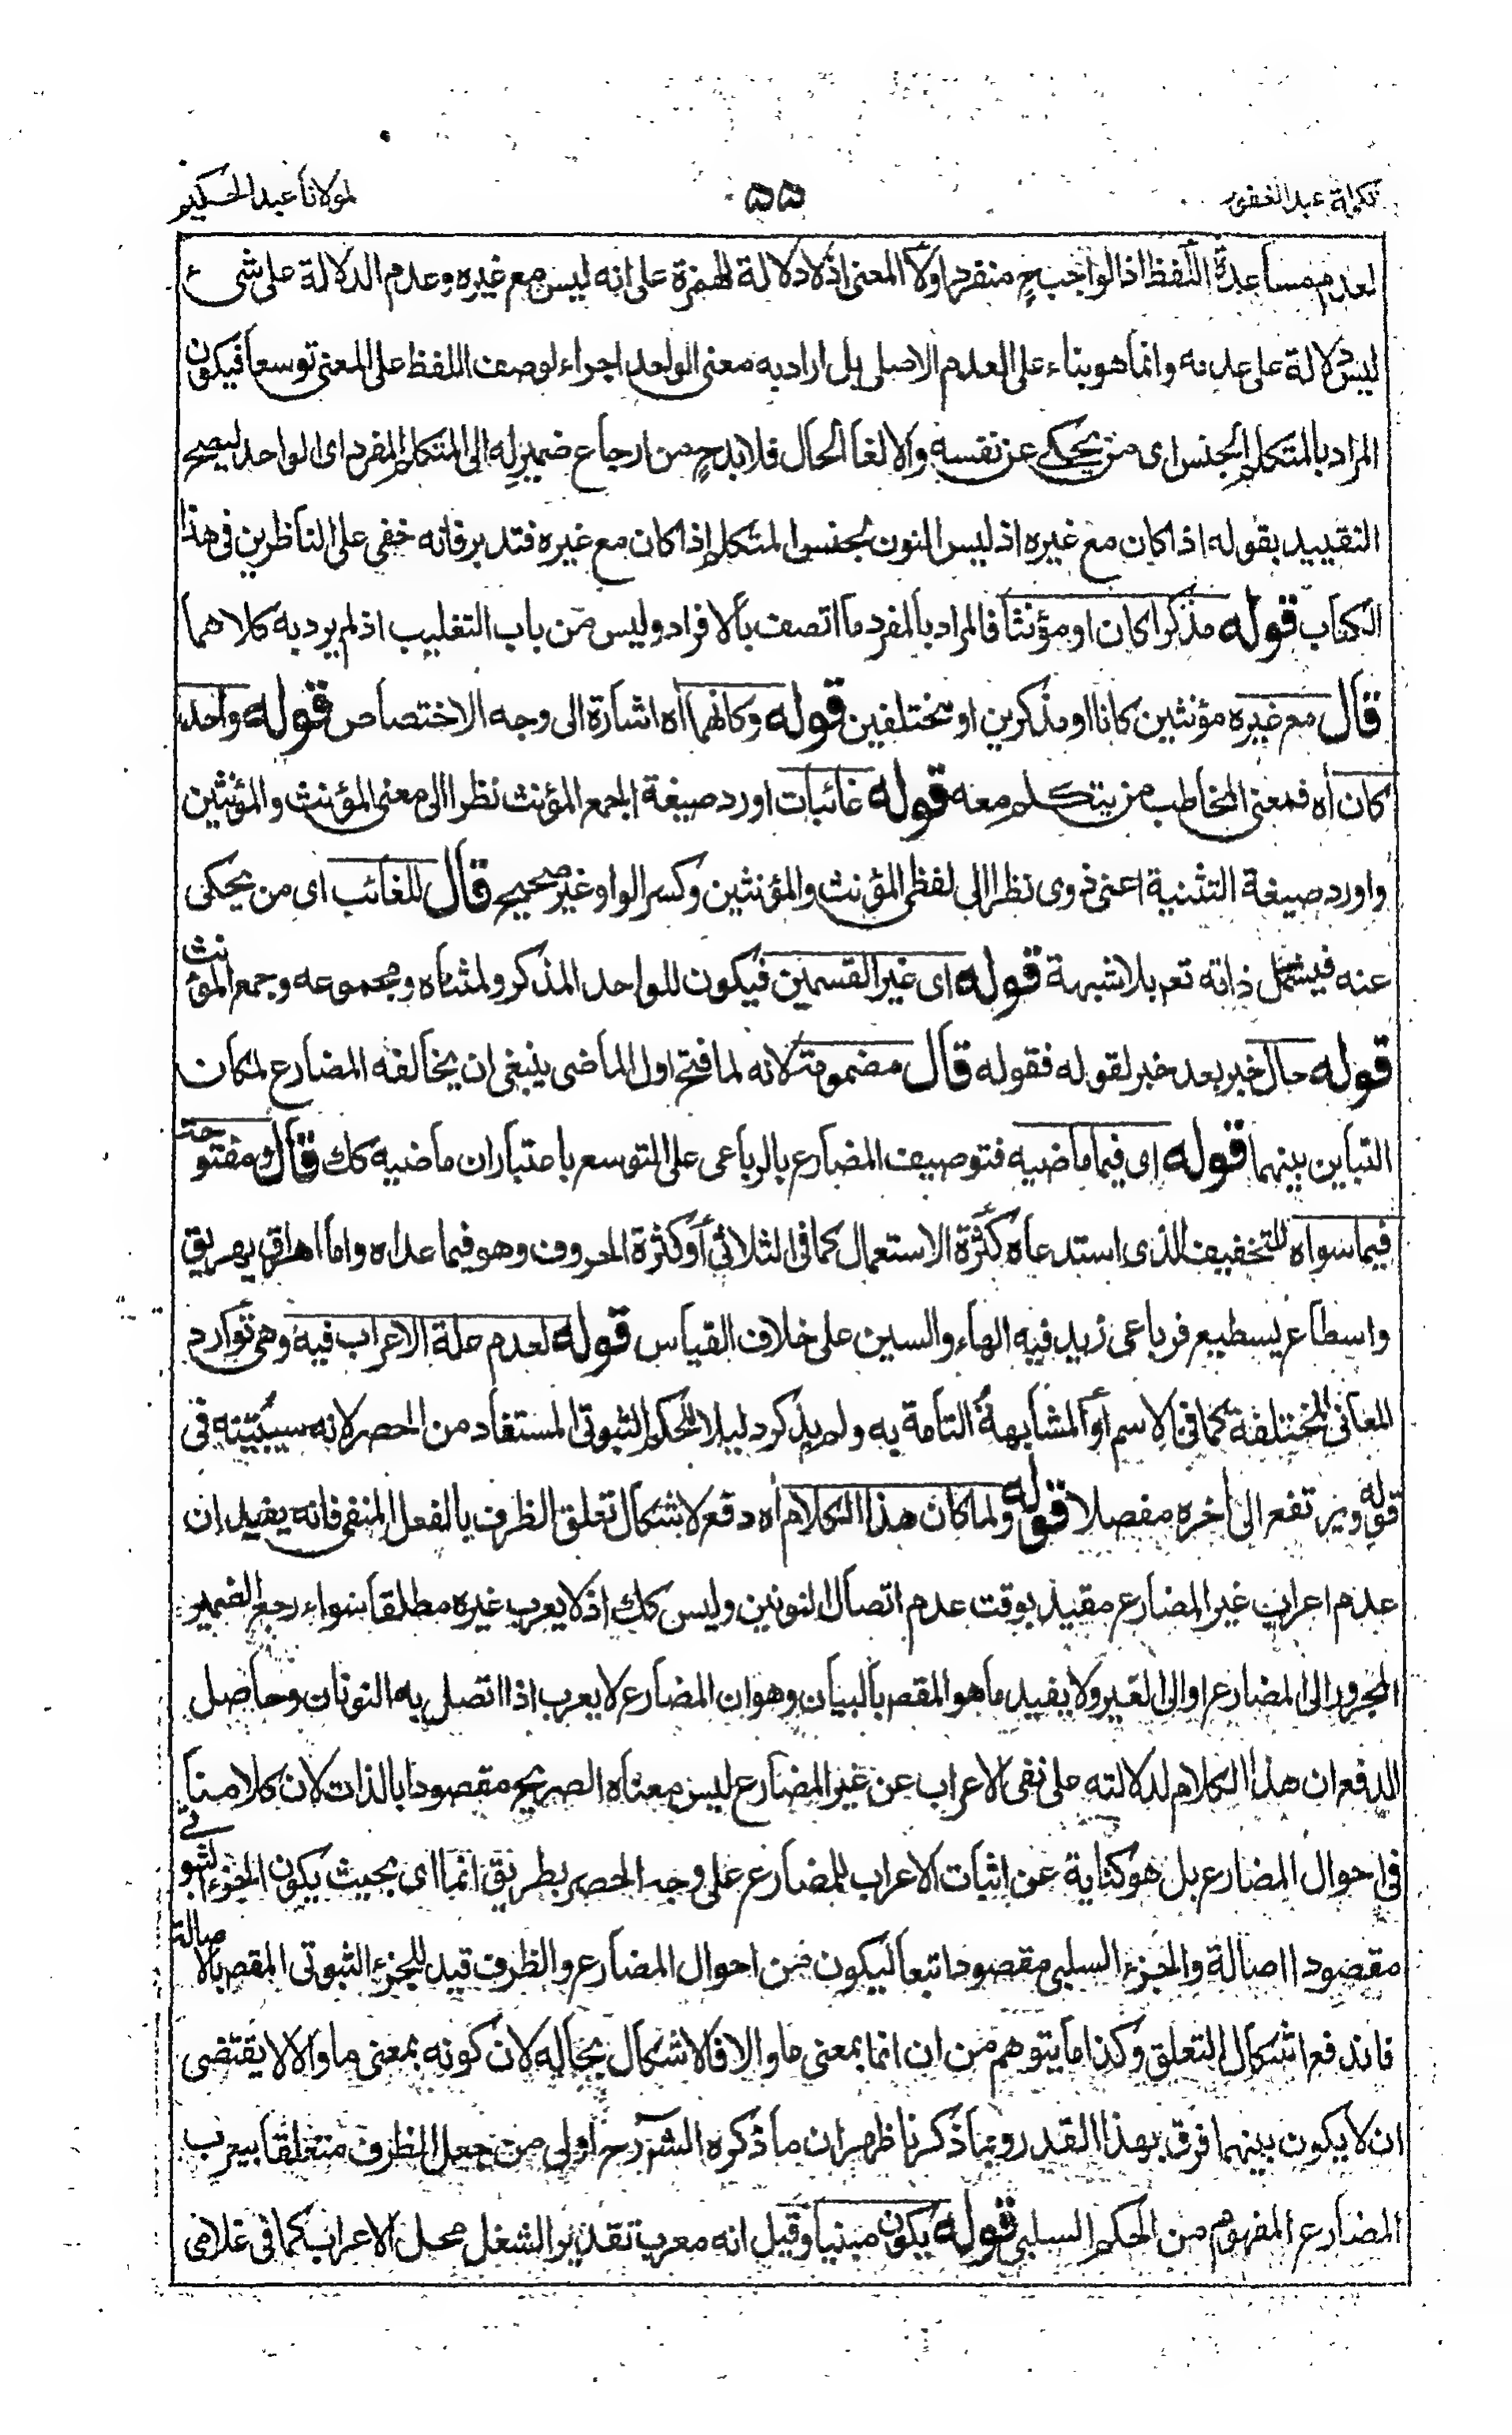 تكملة عبد الغفور
۵۵
لمولانا عبد الحكيم
لعدم مساعدة اللفظ اذ الواجب ح منفردا ولا المعنى اذ لا دلالة للهمزة على انه ليس مع غيره وعدم الدلالة على شىء
ليس دلالة على عدمه وانما هو بناء على العدم الاصلى بل اراد به معنى الواحد اجراء لوصف اللفظ على المعنى توسعا فيكون
المراد بالمتكلم الجنس اى من يحكى عن نفسه والا لغا الحال فلا بد ح من ارجاع ضمير له الى المتكلم المفرد اى الواحد ليصح
التقييد بقوله اذا كان مع غيره اذ ليس النون لجنس المتكلم اذا كان مع غيره فتدبر فانه خفى على الناظرين فى هذا
الكتاب قوله مذكرا كان او مؤنثا فالمراد بالمفرد ما اتصف بالافراد وليس من باب التغليب اذ لم يرد به كلاهما
قال مع غيره مؤنثين كانا او مذكرين او مختلفين قوله وكانهما اه اشارة الى وجه الاختصاص قوله واحدا
كان اه فمعنى المخاطب من يتكلم معه قوله غائبات اورد صيغة الجمع المؤنث نظرا الى معنى المؤنث والمؤنثين
واورد صيغة التثنية اعنى ذوى نظرا الى لفظى المؤنث والمؤنثين وكسر الواو غير صحيح قال للغائب اى من يحكى
عنه فيشمل ذاته تعم بلا شبهة قوله اى غير القسمين فيكون للواحد المذكر ولمثناه ومجموعه وجمع المؤنث
قوله حال خبر بعد خبر لقوله فقوله قال مضمومة لانه لما فتح اول الماضى ينبغى ان يخالفه المضارع لمكان
التباين بينهما قوله اى فيما ماضيه فتوصيف المضارع بالرباعى على التوسع باعتبار ان ماضيه كك قال ومفتوحة
فيما سواه للتخفيف الذى استدعاه كثرة الاستعمال كما فى الثلاثى او كثرة الحروف وهو فيما عداه واما اهراق يهريق
واسطاع يسطيع فرباعى زيد فيه الهاء والسين على خلاف القياس قوله لعدم علة الاعراب فيه وهى توارد
المعانى المختلفة كما فى الاسم او المشابهة التامة به ولم يذكر دليلا للحكم الثبوتى المستفاد من الحصر لانه سيبينه فى
قوله ويرتفع الى اخره مفصلا قوله ولما كان هذا الكلام اه دفع لاشكال تعلق الظرف بالفعل المنفى فانه يفيد ان
عدم اعراب غير المضارع مقيد بوقت عدم اتصال النونين وليس كك اذ لا يعرب غيره مطلقا سواء رجع الضمير
المجرور الى المضارع او الى الغير ولا يفيد ما هو المقصـ بالبيان وهو ان المضارع لا يعرب اذا اتصل به النونان وحاصل
الدفع ان هذا الكلام لدلالته على نفى الاعراب عن غير المضارع ليس معناه الصريح مقصودا بالذات لان كلامنا
فى احوال المضارع بل هو كناية عن اثبات الاعراب للمضارع على وجه الحصر بطريق انما اى بحيث يكون الجزء الثبوتى
مقصودا اصالة والجزء السلبى مقصودا تبعا ليكون من احوال المضارع والظرف قيد للجزء الثبوتى المقصـ بالاصالة
فاندفع اشكال التعلق وكذا ما يتوهم من ان انما بمعنى ما والا فالاشكال بحاله لان كونه بمعنى ما والا لا يقتضى
ان لا يكون بينهما فرق بهذا القدر وبما ذكرنا ظهر ان ما ذكره الشـ رح اولى من جعل الظرف متعلقا بيعرب
المضارع المفهوم من الحكم السلبى قوله يكون مبنيا وقيل انه معرب تقدير الشغل محل الاعراب كما فى غلامى